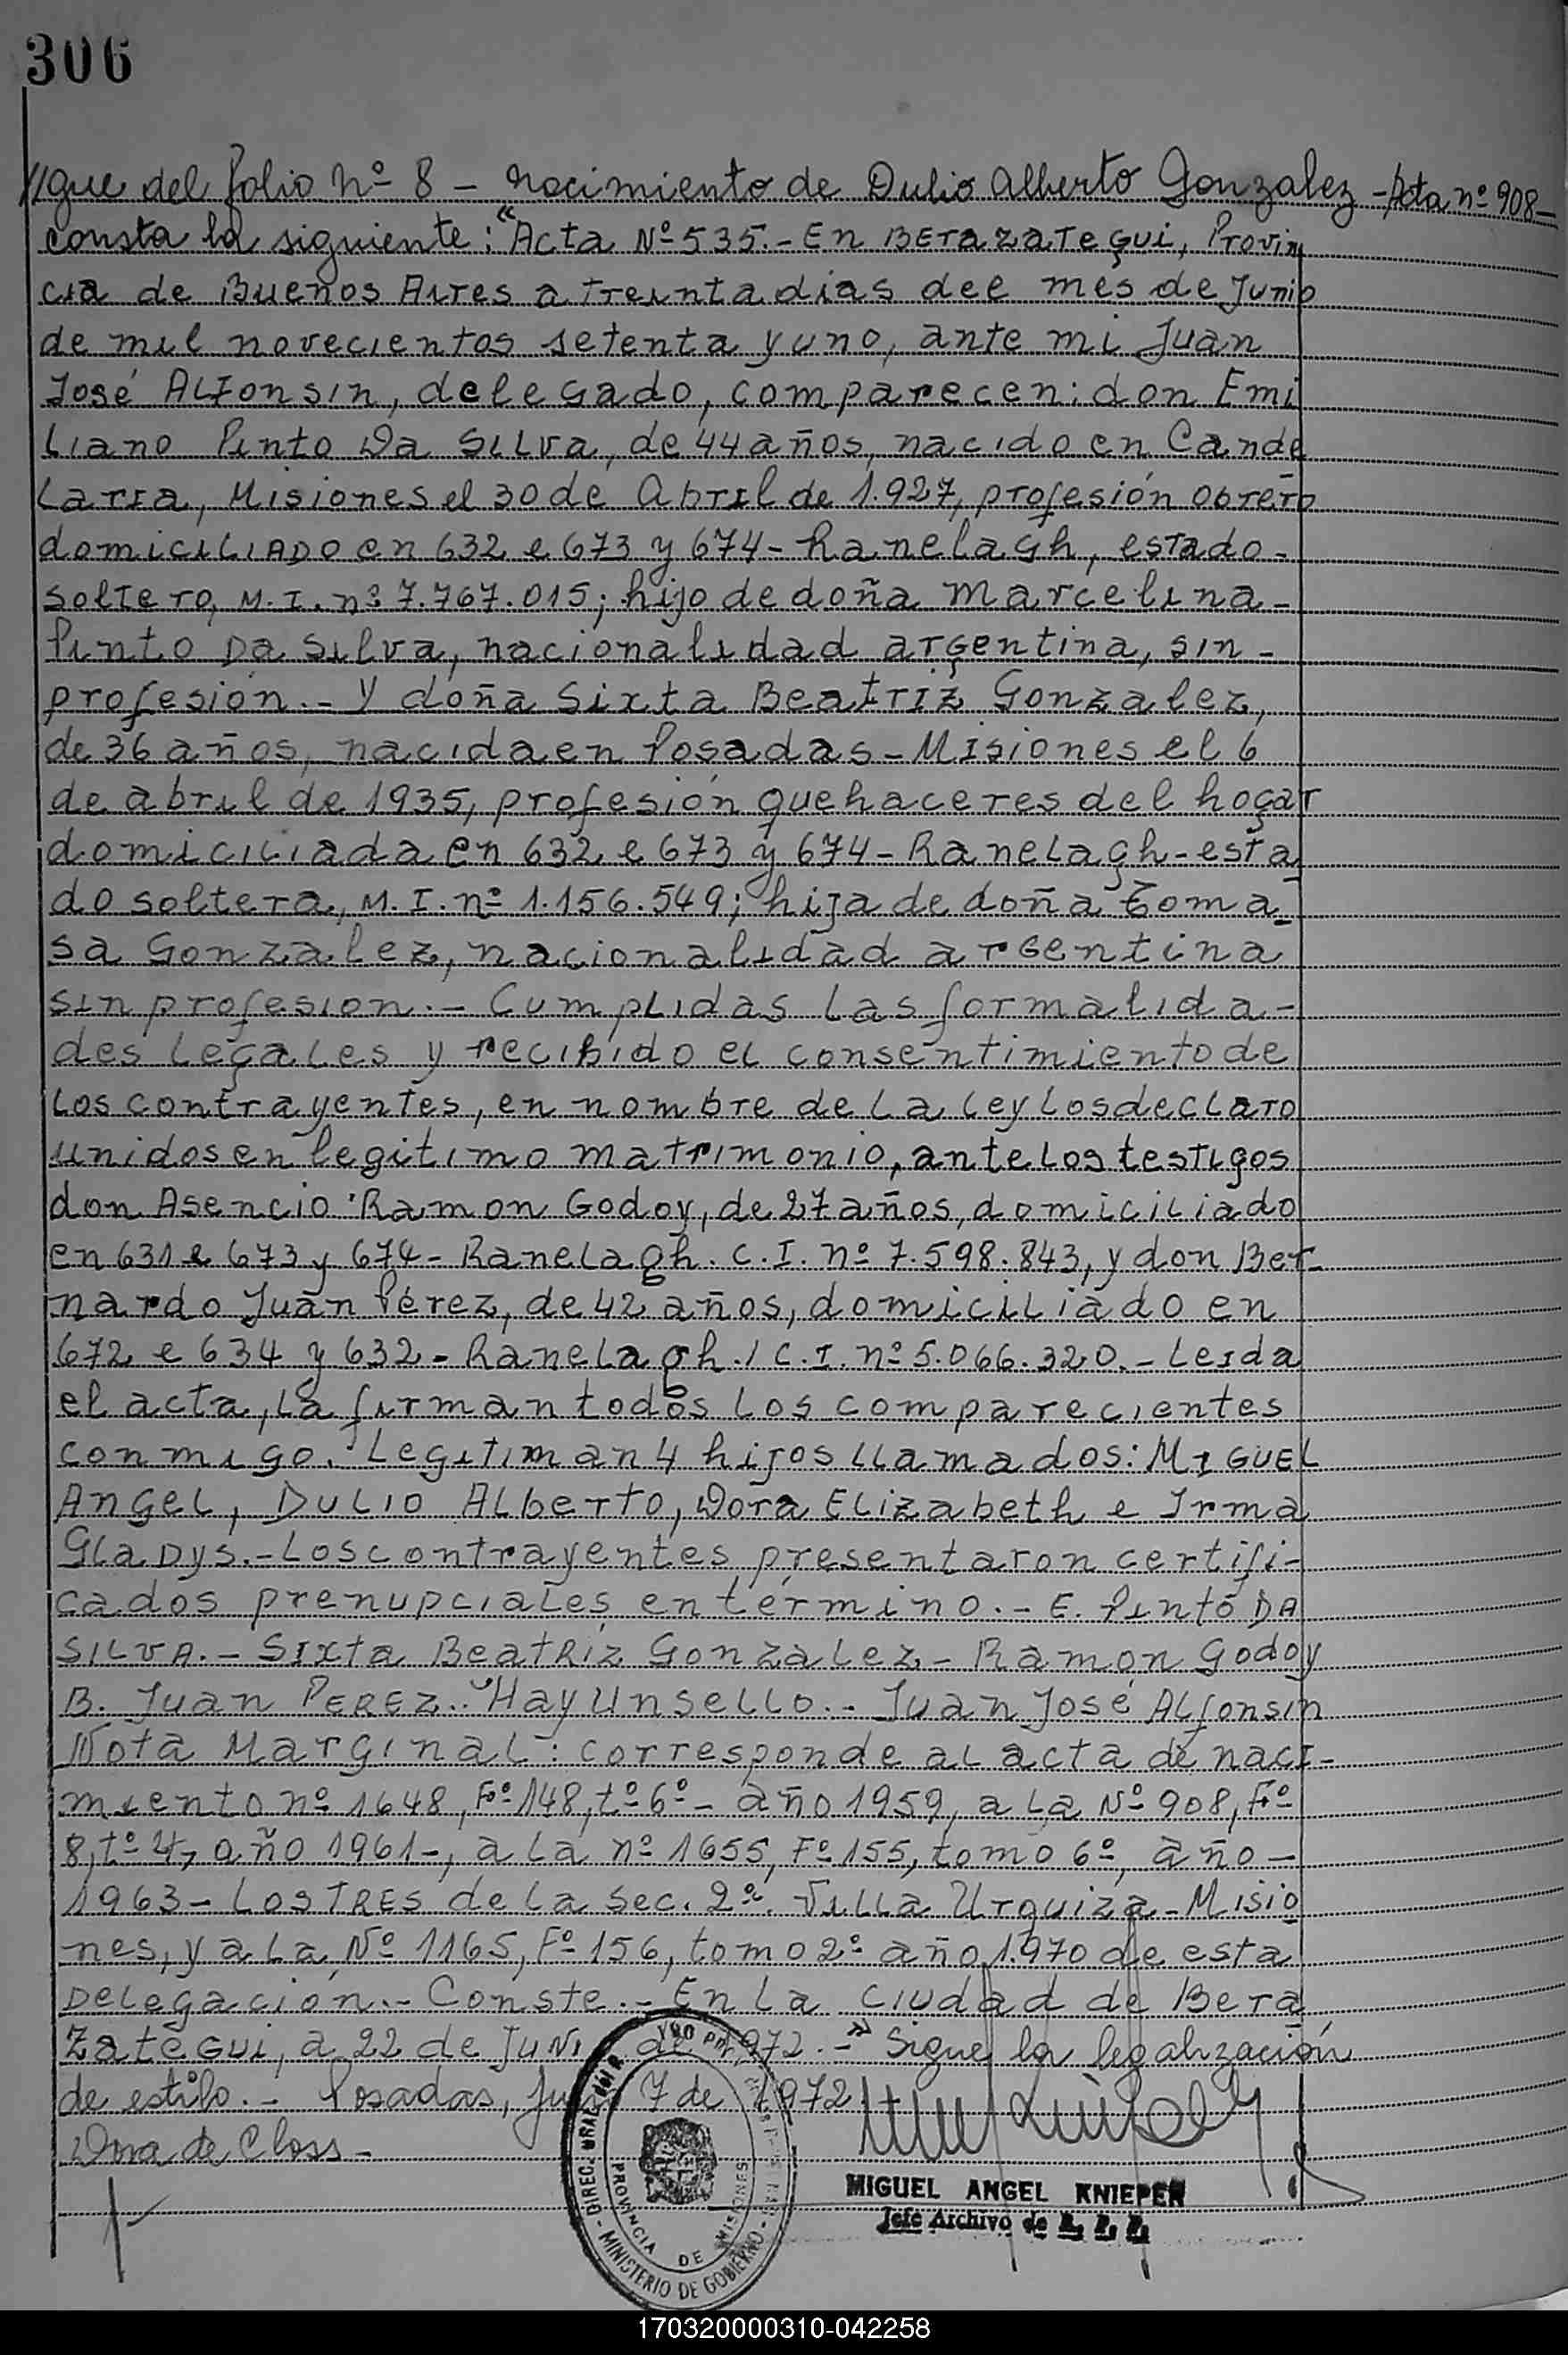 306
//gue del folio Nº 8 - Nacimiento de Dulio Alberto Gonzalez - Acta nº 908-
consta la siguiente: "Acta Nº 535.- En Berazategui, Provin
cia de Buenos Aires a treinta dias del mes de Junio
de mil novecientos setenta y uno, ante mi Juan
José Alfonsin, delegado, comparecen: don Emi
liano Pinto Da Silva, de 44 años, nacido en Cande
laria, Misiones el 30 de Abril de 1.927, profesión obrero
domiciliado en 632 e 673 y 674 - Ranelagh, estado -
soltero, M.I. nº 7.767.015; hijo de doña Marcelina -
Pinto Da Silva, nacionalidad argentina, sin -
profesión.- Y doña Sixta Beatriz Gonzalez,
de 36 años, nacida en Posadas - Misiones el 6
de abril de 1935, profesión quehaceres del hogar
domiciliada en 632 e 673 y 674 - Ranelagh - esta
do soltera, M.I. nº 1.156.549; hija de doña Toma-
sa Gonzalez, nacionalidad argentina
sin profesion.- Cumplidas las formalida-
des legales y recibido el consentimiento de
los contrayentes, en nombre de la ley los declaro
unidos en legitimo matrimonio, ante los testigos
don Asencio Ramon Godoy, de 27 años, domiciliado
en 631 e 673 y 674 - Ranelagh. C.I. nº 7.598.843, y don Ber-
nardo Juan Pérez, de 42 años, domiciliado en
672 e 634 y 632 - Ranelagh./ C.I. nº 5.066.320.- Leida
el acta, la firman todos los comparecientes
conmigo. Legitiman 4 hijos llamados: Miguel
Angel, Dulio Alberto, Dora Elizabeth e Irma
Gladys.- Los contrayentes presentaron certifi-
cados prenupciales en término.- E. Pinto Da
Silva.- Sixta Beatriz Gonzalez - Ramón Godoy
B. Juan Perez.. "Hay un sello.- Juan José Alfonsin
Nota Marginal: corresponde al acta de naci-
miento nº 1648, Fº 148, tº 6º - año 1959, a la Nº 908, Fº
8, tº 4, año 1961-, a la nº 1655, Fº 155, tomo 6º, año -
1963 - Los tres de la Sec. 2ª. Villa Urquiza - Misio
nes, y a la Nº 1165, Fº 156, tomo 2º año 1.970 de esta
Delegación.- Conste.- En la ciudad de Bera
zategui, a 22 de Juni de 1972.-" Sigue la legalización
de estilo.- Posadas, 7 de 1972
Dora de Closs -
MIGUEL ANGEL KNIEPER
Jefe Archivo de R. P. P.
PROVINCIA DE MISIONES
MINISTERIO DE GOBIERNO
170320000310-042258